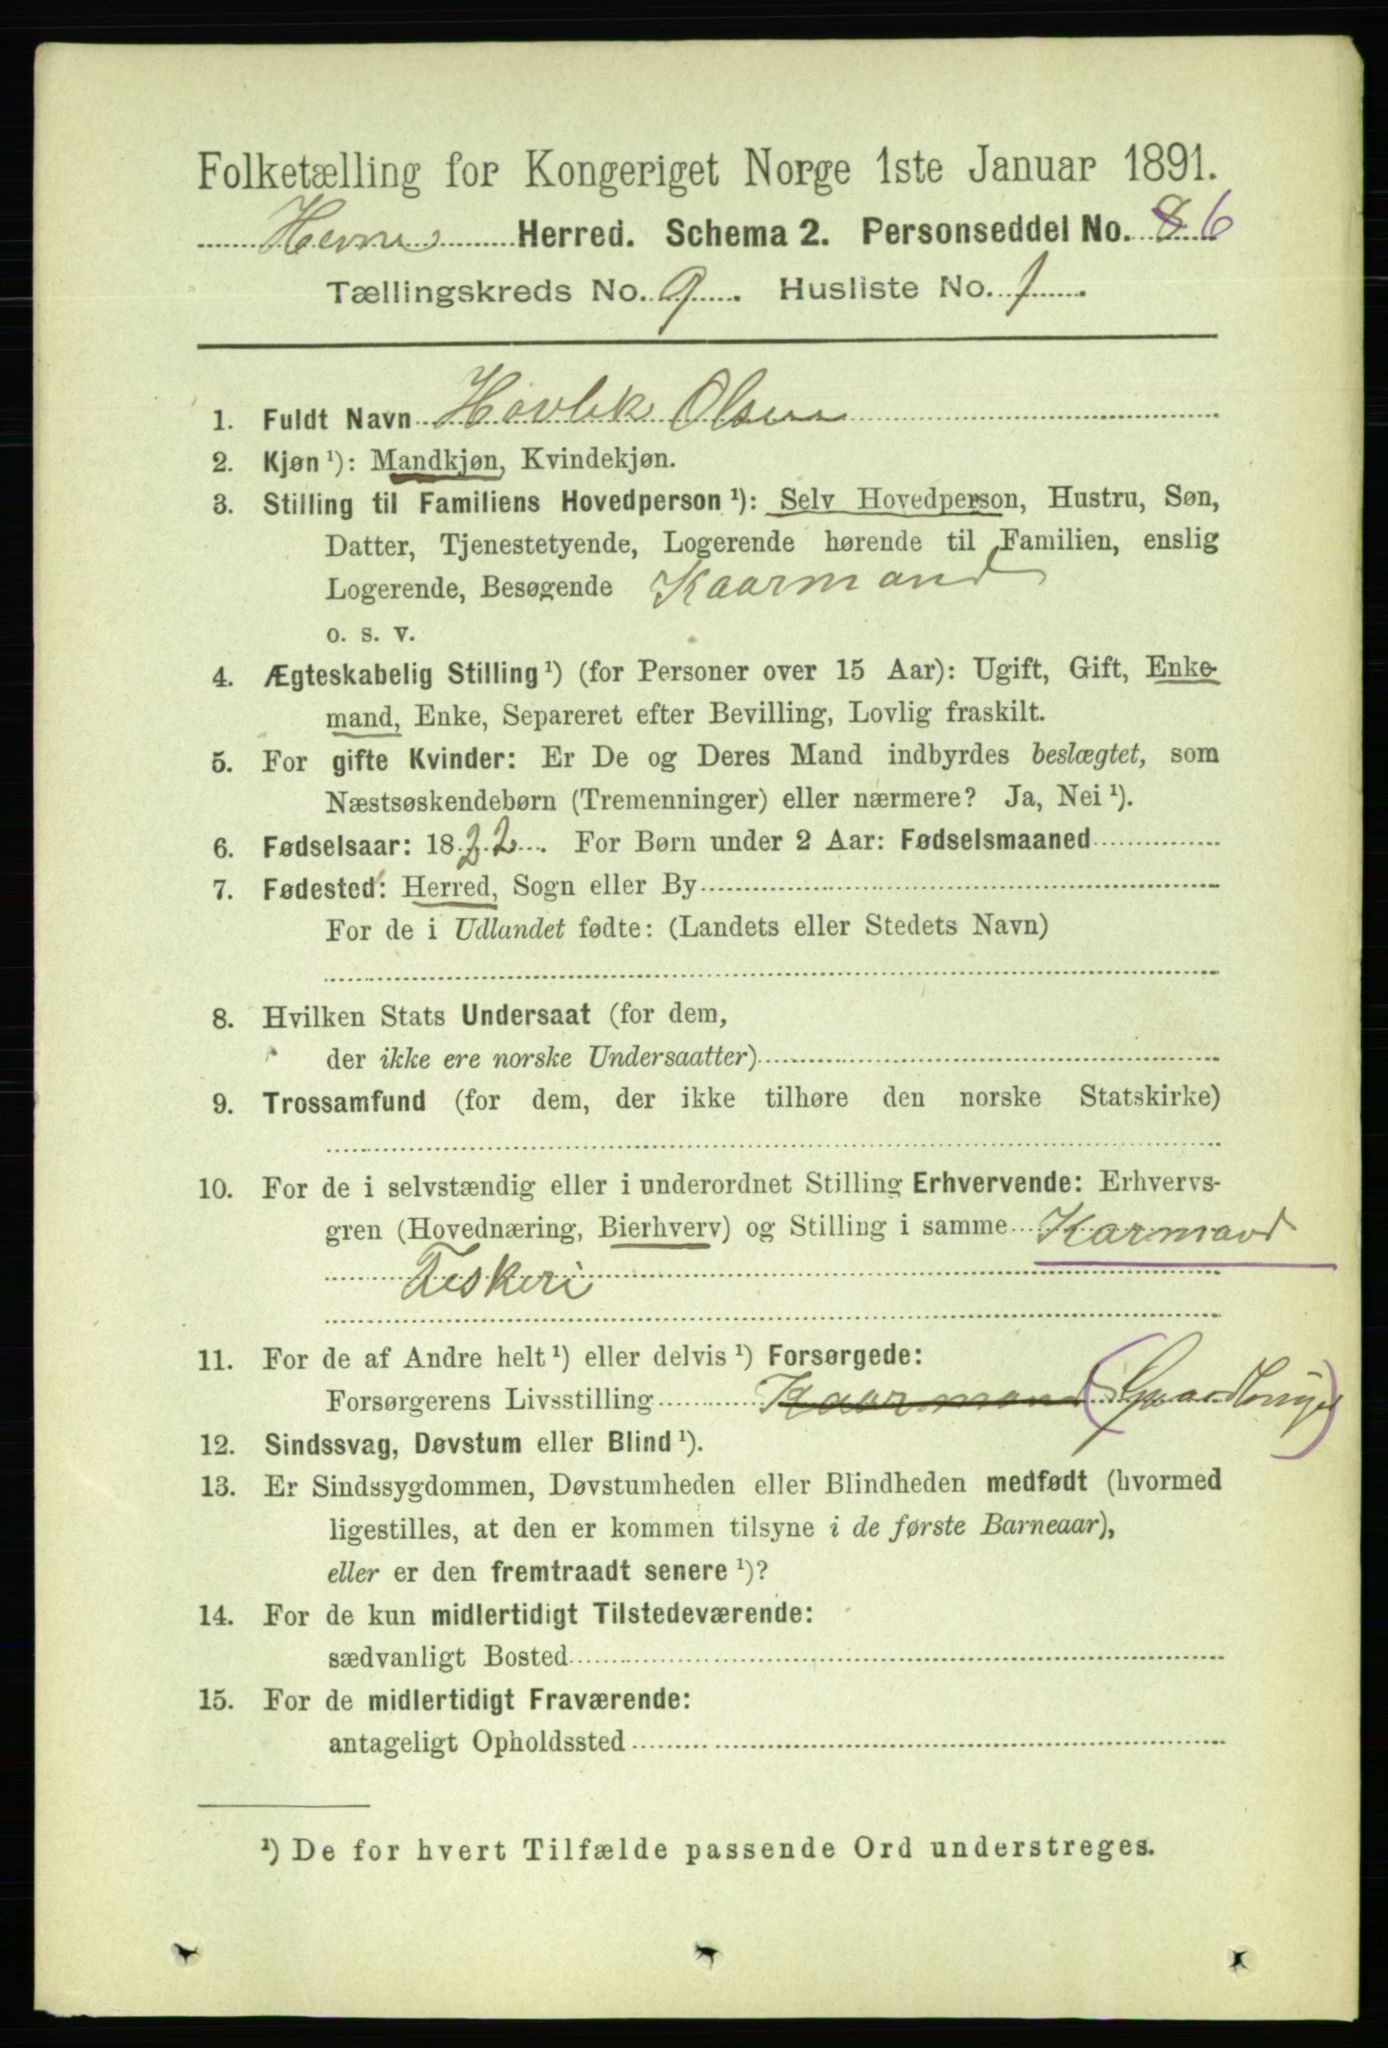 Folketælling for Kongeriget Norge 1ste Januar 1891.
Hevne Herred. Schema 2. Personseddel No. 8 6
Tællingskreds No. 9. Husliste No. 1.
1. Fuldt Navn Hovlek Olsen
2. Kjøn ¹): Mandkjøn, Kvindekjøn.
3. Stilling til Familiens Hovedperson ¹): Selv Hovedperson, Hustru, Søn,
Datter, Tjenestetyende, Logerende hørende til Familien, enslig
Logerende, Besøgende Kaarmand
o. s. v.
4. Ægteskabelig Stilling ¹) (for Personer over 15 Aar): Ugift, Gift, Enke-
mand, Enke, Separeret efter Bevilling, Lovlig fraskilt.
5. For gifte Kvinder: Er De og Deres Mand indbyrdes beslægtet, som
Næstsøskendebørn (Tremenninger) eller nærmere? Ja, Nei ¹).
6. Fødselsaar: 1822. For Børn under 2 Aar: Fødselsmaaned
7. Fødested: Herred, Sogn eller By
For de i Udlandet fødte: (Landets eller Stedets Navn)
8. Hvilken Stats Undersaat (for dem,
der ikke ere norske Undersaatter)
9. Trossamfund (for dem, der ikke tilhøre den norske Statskirke)
10. For de i selvstændig eller i underordnet Stilling Erhvervende: Erhvervs-
gren (Hovednæring, Bierhverv) og Stilling i samme Karmand
Fiskeri
11. For de af Andre helt ¹) eller delvis ¹) Forsørgede:
Forsørgerens Livsstilling Kaarmand
12. Sindssvag, Døvstum eller Blind ¹).
13. Er Sindssygdommen, Døvstumheden eller Blindheden medfødt (hvormed
ligestilles, at den er kommen tilsyne i de første Barneaar),
eller er den fremtraadt senere ¹)?
14. For de kun midlertidigt Tilstedeværende:
sædvanligt Bosted
15. For de midlertidigt Fraværende:
antageligt Opholdssted
¹) De for hvert Tilfælde passende Ord understreges.